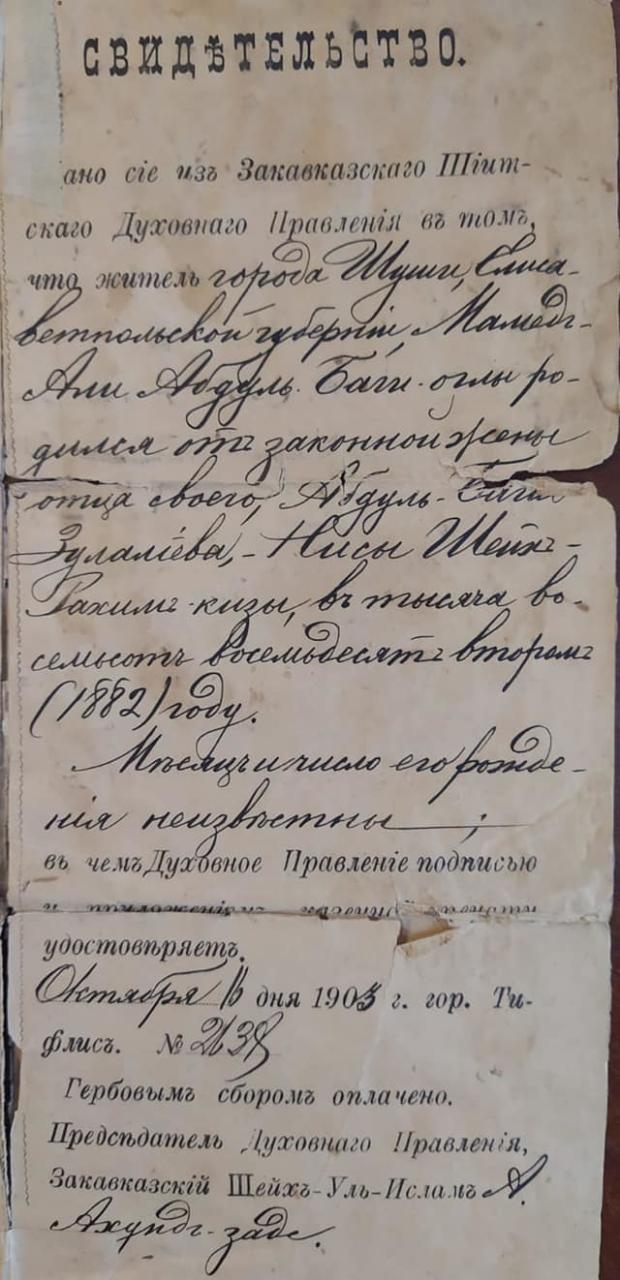 СВИДѢТЕЛЬСТВО.
ано сіе изъ Закавказскаго Шіит-
скаго Духовнаго Правленія въ томъ,
что житель города Шуши, Елиса-
ветпольской губерніи, Мамедъ-
Али Абдулъ-Баги-оглы ро-
дился отъ законной жены
отца своего, Абдулъ-Баги
Зулаліева, - Нисы Шейхъ-
Рахимъ-кизы, въ тысяча во-
семьсотъ восемьдесятъ второмъ
(1882) году.
Мѣсяцъ и число его рожде-
нія неизвѣстны ;
въ чемъ Духовное Правленіе подписью
удостовѣряетъ.
Октября дня 1903 г. гор. Ти-
флисъ. №
Гербовымъ сборомъ оплачено.
Предсѣдатель Духовнаго Правленія,
Закавказскій Шейхъ-Уль-Исламъ А.
Ахундъ-заде.